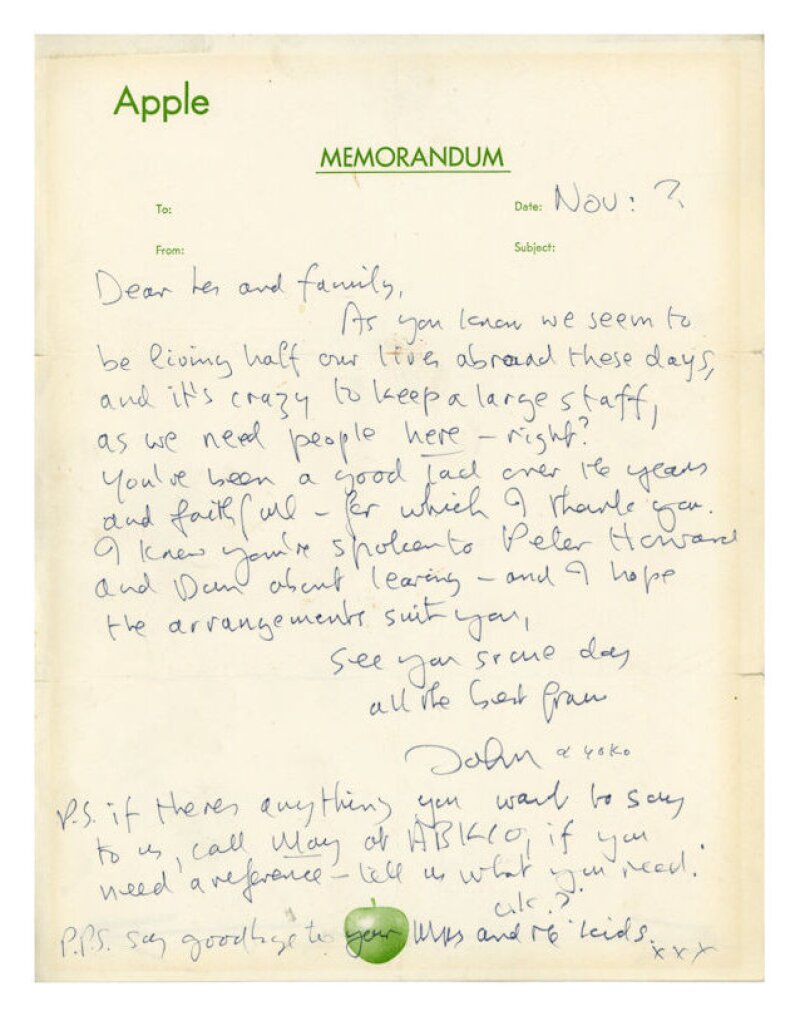 Apple
MEMORANDUM
To:
Date: Nov: ?
From:
Subject:
Dear Les and family,
As you know we seem to
be living half our lives abroad these days,
and it's crazy to keep a large staff,
as we need people here – right?
You've been a good lad over the years
and faithfull – for which I thank you.
I know you've spoken to Peter Howard
and Dan about leaving – and I hope
the arrangements suit you,
see you some day
all the best from
John & yoko
P.S. if theres anything you want to say
to us, call May at ABKCO, if you
need a reference – tell us what you need.
o.k.?
P.P.S. say goodbye to your and the kids. xxx